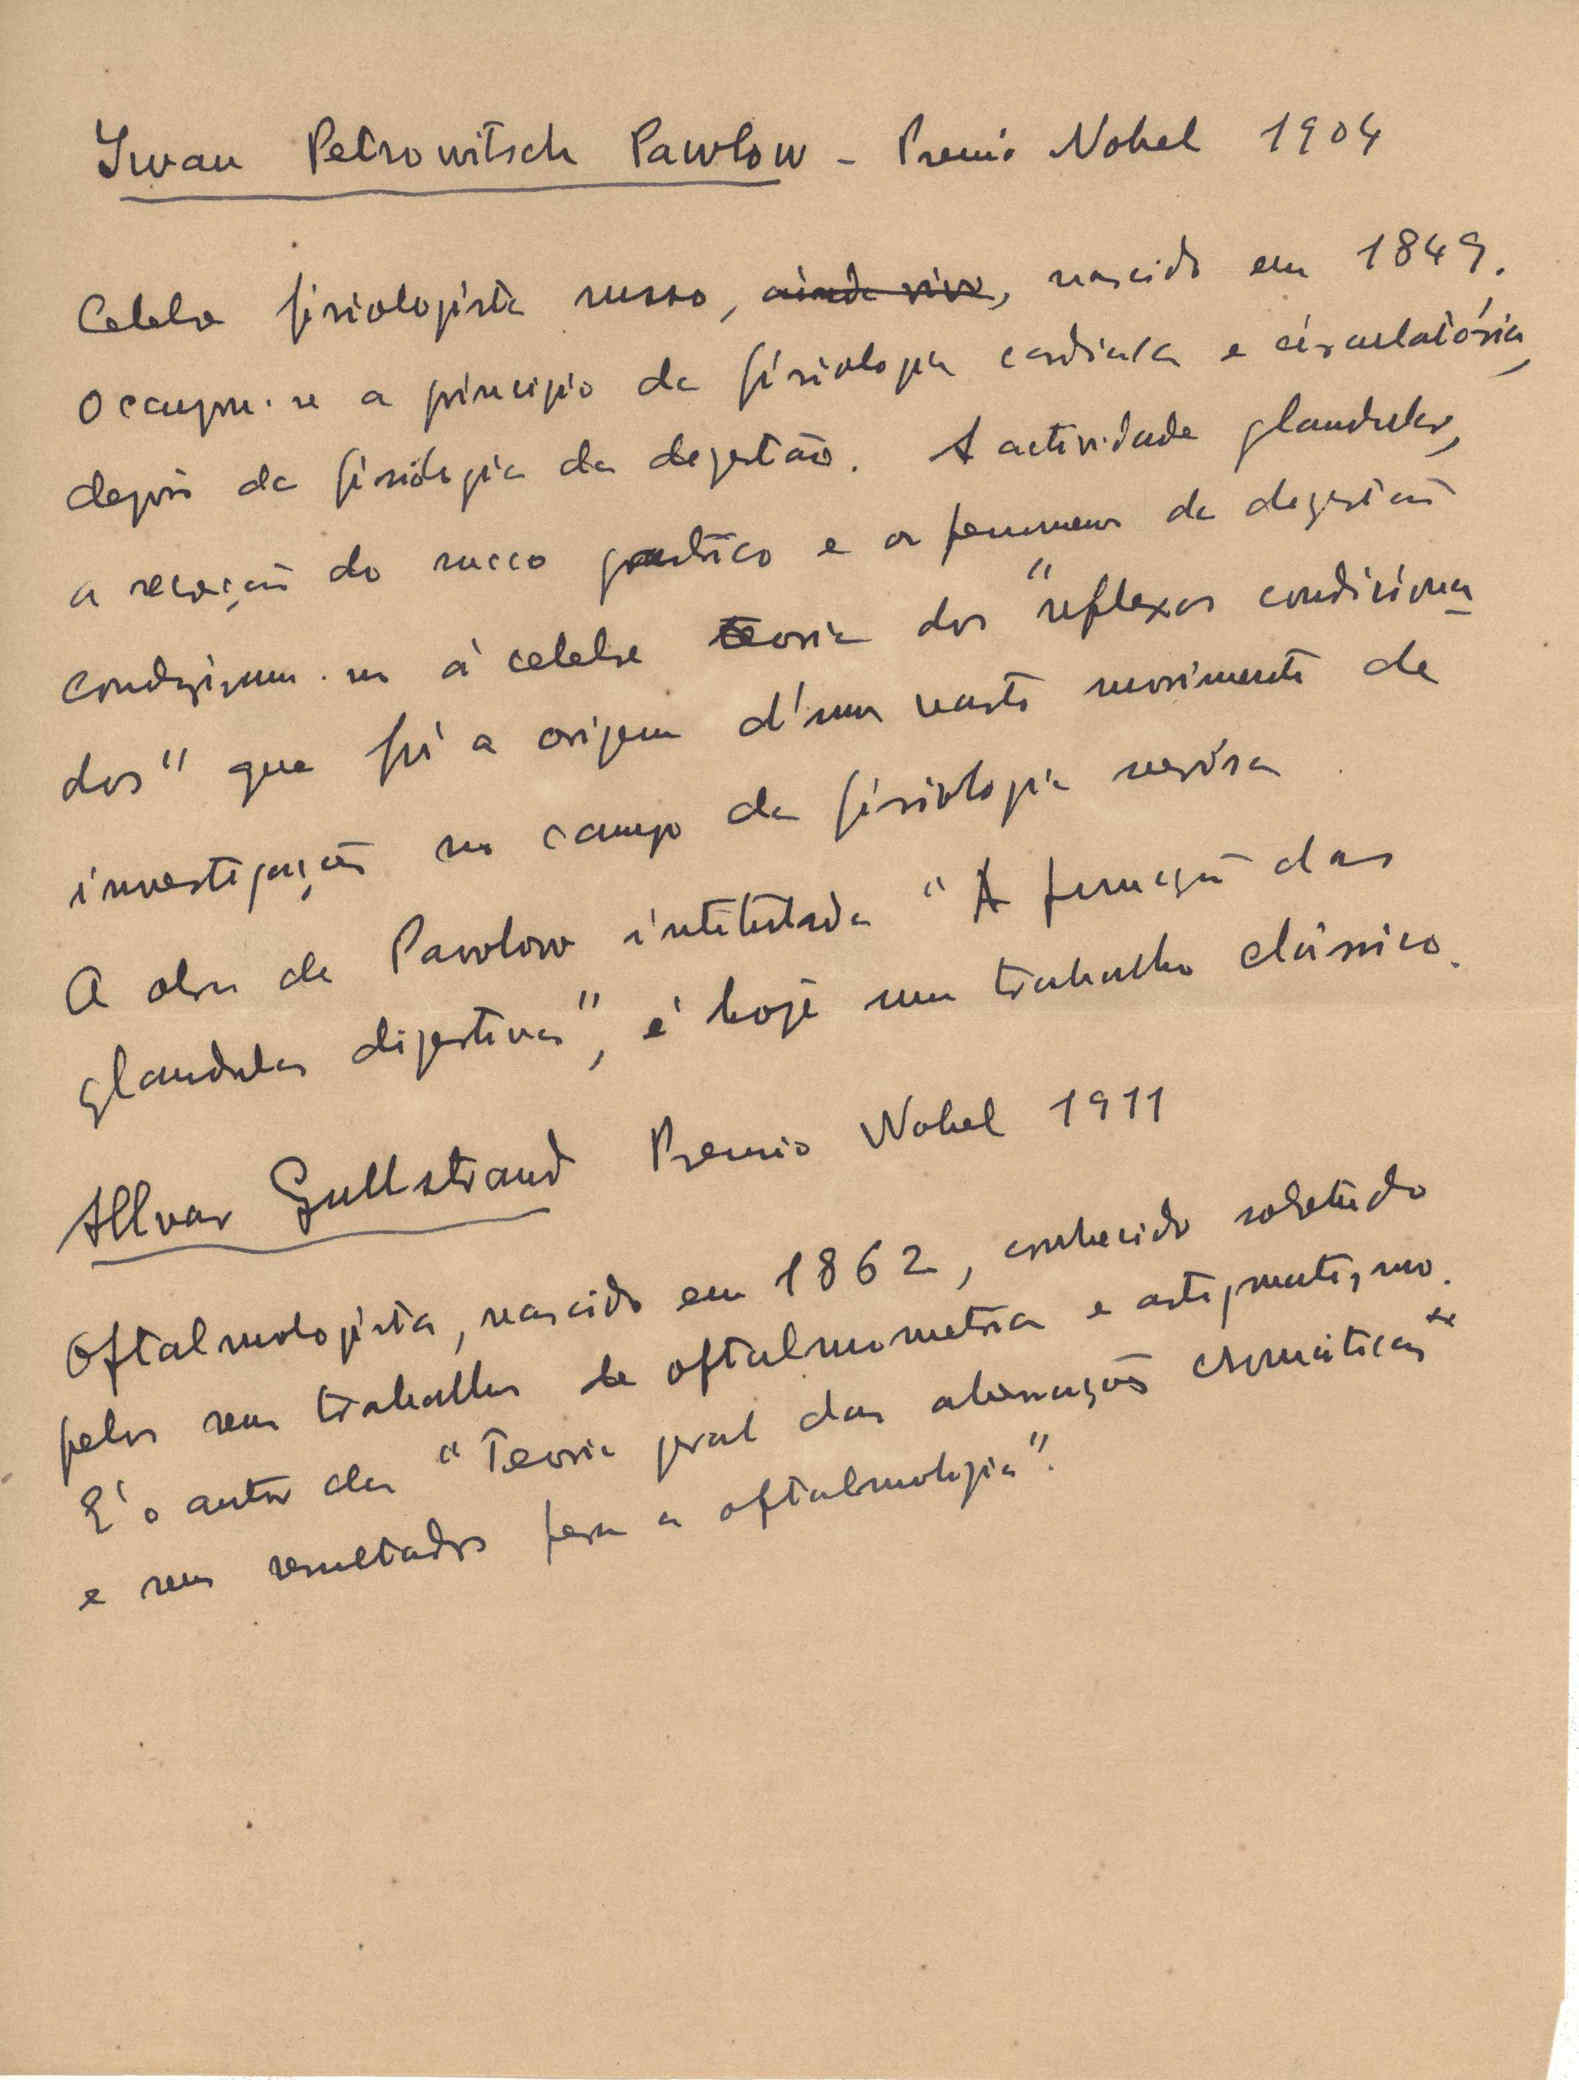 Iwan Petrowitsch Pawlow - Premio Nobel 1904
Celebre fisiologista russo, ainda vivo, nascido em 1849.
Occupou-se a principio da fisiologia cardiaca e circulatória,
depois da fisiologia da degestão. A actividade glandular,
a secreção do succo gastrico e os fenomenos da degestão
conduziram-no á celebre teoria dos "reflexos condiciona
dos" que foi a origem d'um vasto movimento de
investigação no campo da fisiologia nervosa
A obra de Pawlow intitulada "A funcção das
glandulas digestivas", é hoje um trabalho clássico.
Allvar Gullstrand Premio Nobel 1911
Oftalmologista, nascido em 1862, conhecido sobretudo
pelos seus trabalhos de oftalmometria e astigmatismo.
E' o autor da "Teoria geral das aberrações cromáticas"
e seus resultados para a oftalmologia".